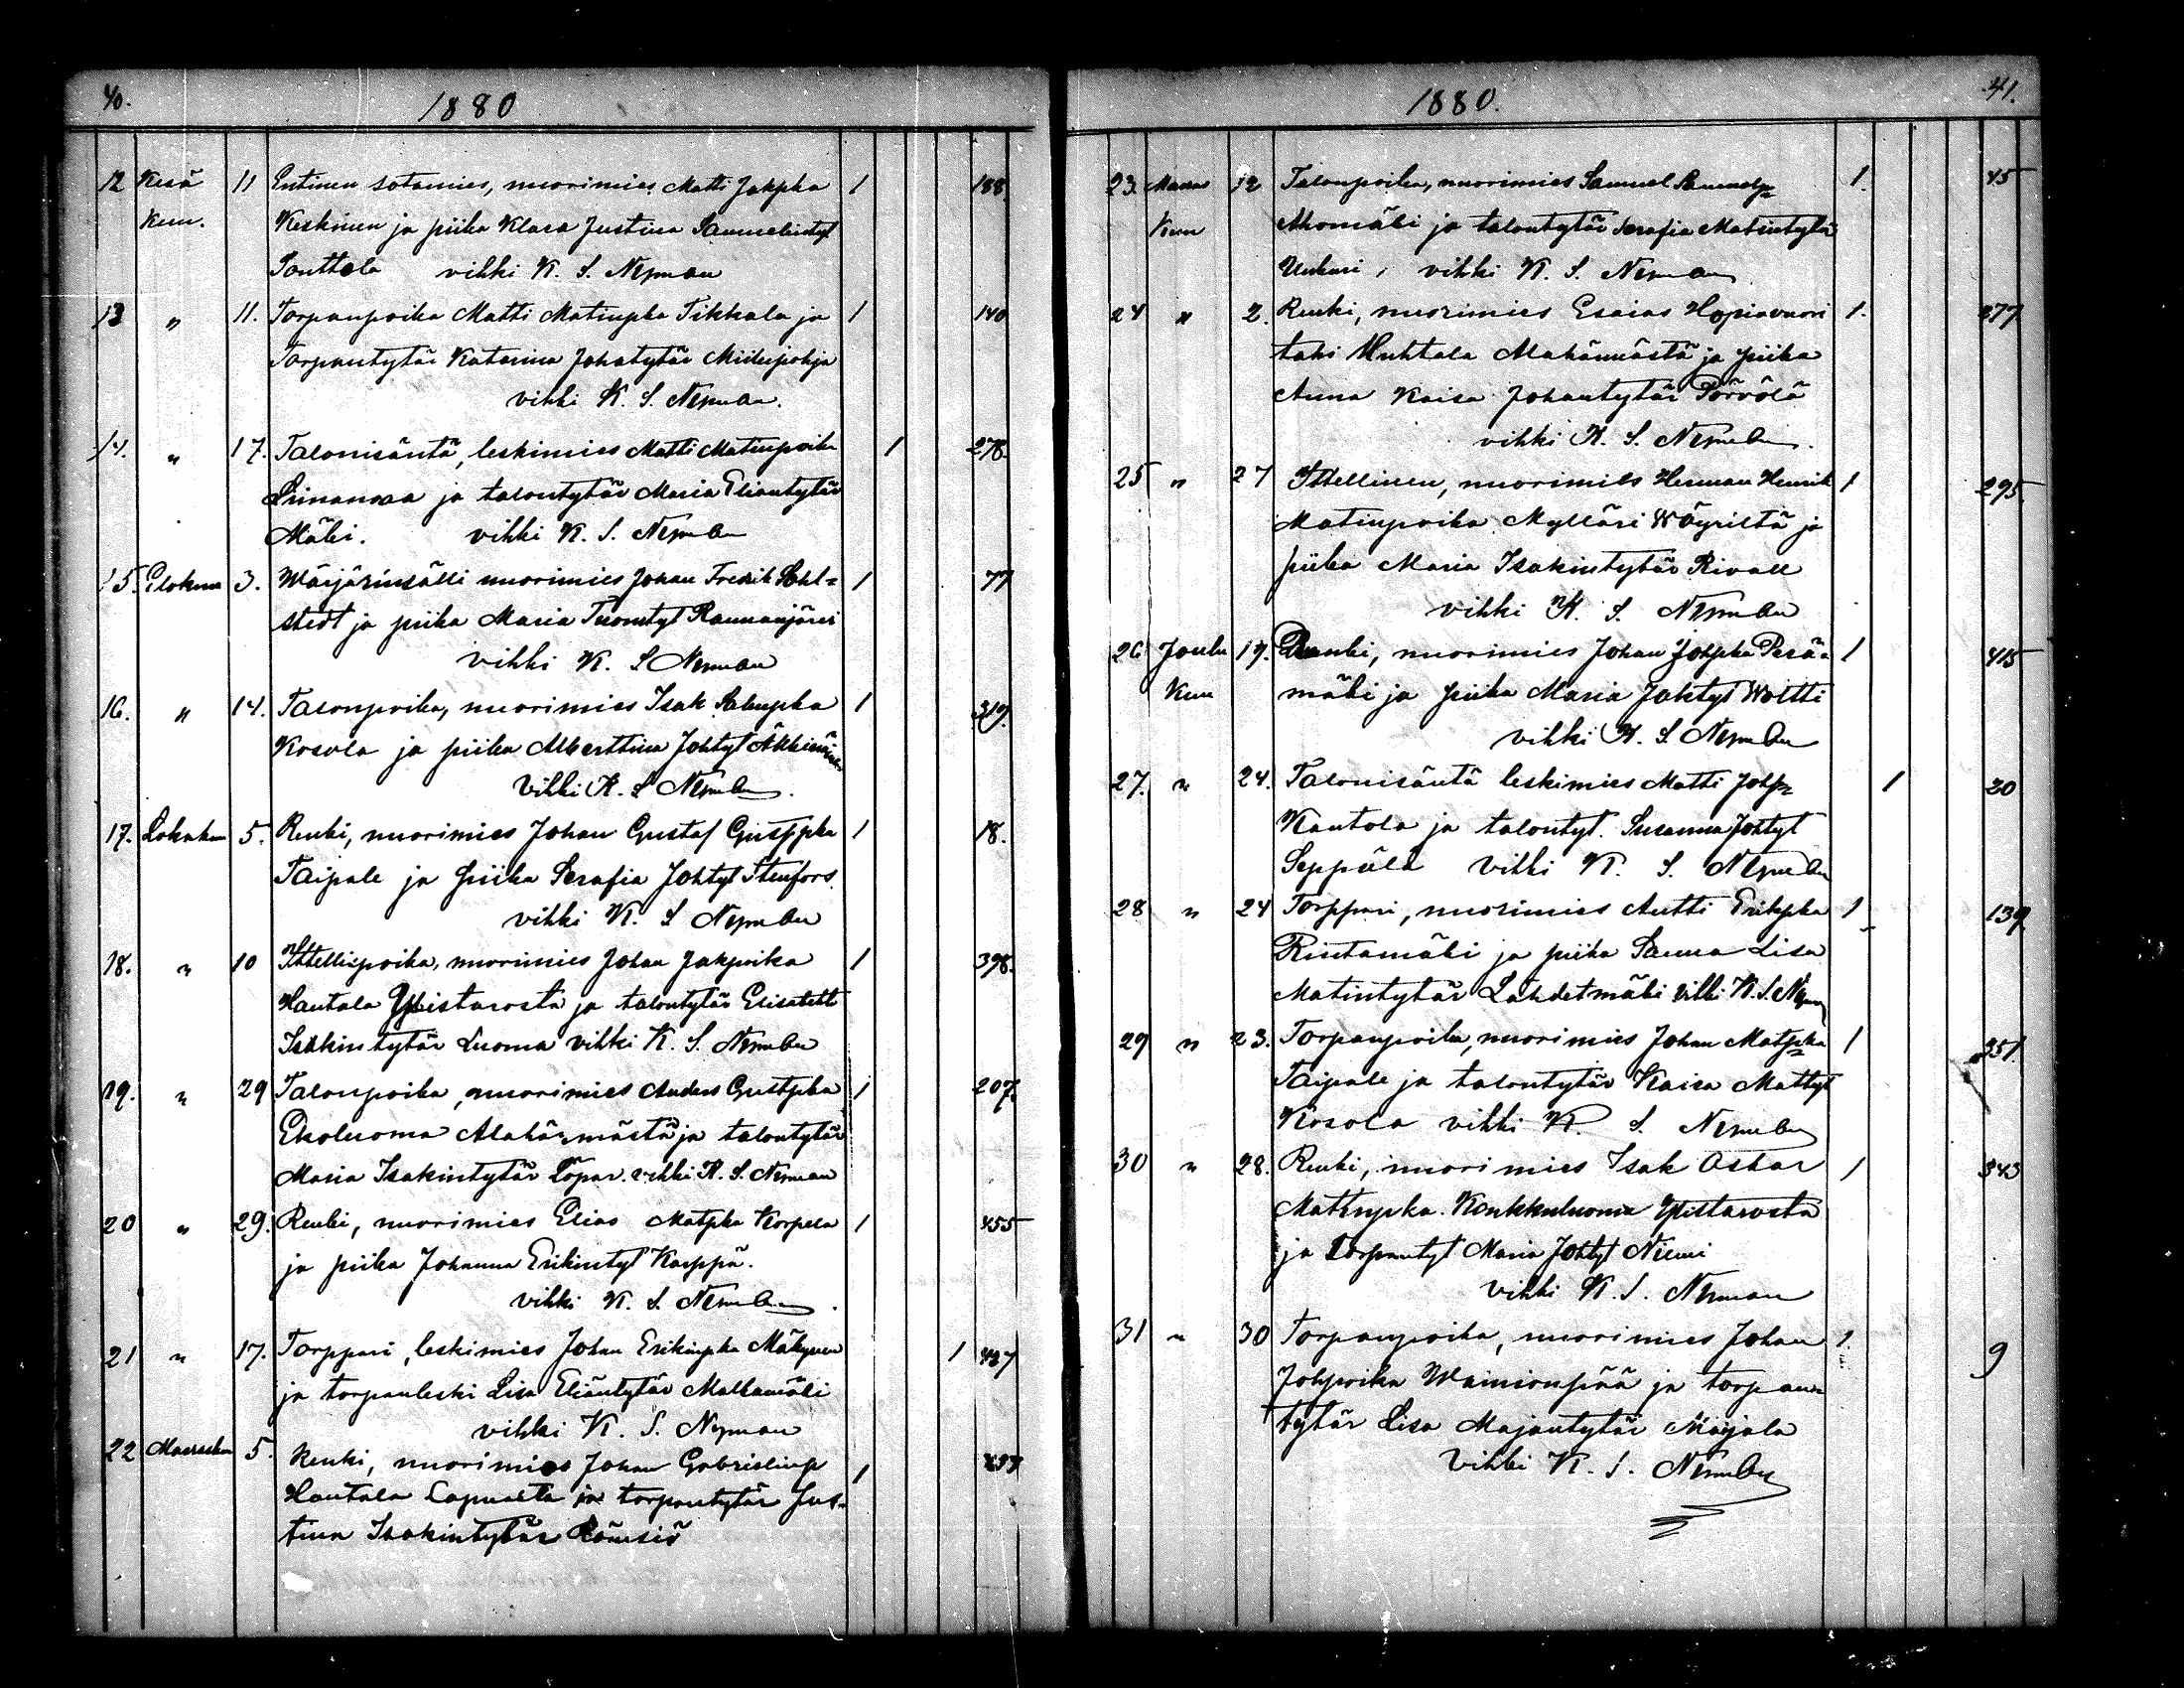 40.
1880
12 Kesä 11 Entinen sotamies, nuorimies Matti Jakpka 1 188
kuu. Keskinen ja piika Klara Justina Samuelintyt
Jouttela vihki K. S. Nyman
13 " 11. Torpanpoika Matti Matinpka Tikkala ja 1 140
Torpantytär Katarina Johatytär Miilupohja
vihki K. S. Nyman.
14. " 17. Talonisäntä, leskimies Matti Matinpoika 1 278.
Liinamaa ja talontytär Maria Eliantytär
Mäki. vihki K. S. Nyman
15. Elokuu 3. Wärjärinsälli nuorimies Johan Fredrik Sohl=
stedt ja piika Maria Tuomtyt Raumanjärvi 1 77
vihki K. S Nyman
16. " 14. Talonpoika, nuorimies Isak Salupka 1 319.
Kosola ja piika Alberttina Johtyt
vihki K. S Nyman.
17. Lokakuu 5. Renki, nuorimies Johan Gustaf Gustfpka 1 18.
Taipale ja piika Serafia Johtyt Stenfors.
vihki K. S Nyman
18. " 10 Ittellispoika, nuorimies Johan Jakpoika 1 398.
Hautala Ylistarosta ja talontytär Elisabetti
Isakintytär Luoma vihki K. S. Nyman
19. " 29 Talonpoika, nuorimies Anders Gustpka 1 207.
Ekoluoma Alahärmästä ja talontytär
Maria Isakintytär Löpar. vihki K. S. Nyman
20 " 29. Renki, nuorimies Elias Matpka Korpela 1 455
ja piika Johanna Erikintyt Karppä.
vihki K. S. Nyman.
21 " 17. Torppari, leskimies Johan Erikinpka Mäkynen 1
ja torpanleski Lisa Eliäntytär Mallamäki
vihki K. S. Nyman
22 Marraskuu 5. Renki, nuorimies Johan Gabrielinp 1
Hautala Lapualta ja torpantytär Jus-
tina Isakintytär Römsiö
41.
1880.
23. Marras 12 Talonpoika, nuorimies Samuel Samuelp 1. 45
Kuu Ahomäki ja talontytär Serafia Matintytär
Unkuri, vihki K. S. Nyman
24 " 2. Renki, nuorimies Esaias Hopiavuori 1. 277
taki Huhtala Alahärmästä ja piika
Anna Kaisa Johantytär Pörvölä
vihki K. S. Nyman.
25 " 27 Ittellinen, nuorimies Herman Henrik 1 295
Matinpoika Mylläri Wöyriltä ja
piika Maria Isakintytär Rivall
vihki K. S. Nyman
26 Joulu 17. Renki, nuorimies Johan Johpka Perä= 1 415
Kuu mäki ja piika Maria Johtyt Woltti
vihki K. S. Nyman
27. " 24. Talonisäntä leskimies Matti Johp 1 30
Kantola ja talontyt. Susanna Johtyt
Seppälä vihki K. S. Nyman
28 " 24 Torppari, nuorimies Antti Erikpka 1 139
Rintamäki ja piika Sanna Lisa
Matintytär Lahdetmäki vihki K. S. Nyman
29 " 23. Torpanpoika, nuorimies Johan Matpka 1 251
Taipale ja talontytär Kaisa Mattyt
Kosola vihki K. S. Nyman
30 " 28. Renki, nuorimies Isak Oskar 1 343
Matinpka. Konkkuluoma Ylistarosta
ja Torpantyt Maria Johtyt Niemi
vihki K. S. Nyman
31 " 30 Torpanpoika, nuorimies Johan 1. 9
Johpoika Wainionpää ja torpan=
tytär Lisa Majantytär Märjala
vihki K. S. Nyman